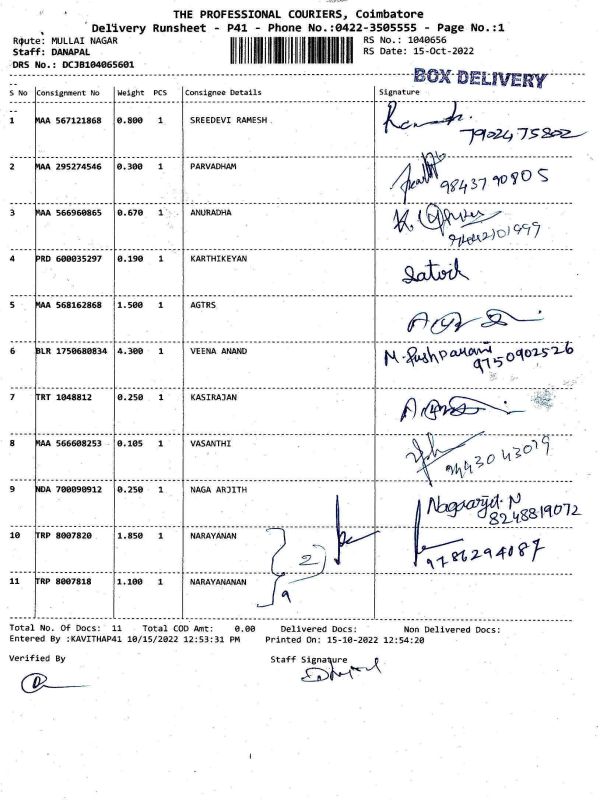 THE PROFESSIONAL COURIERS, Coimbatore
Delivery Runsheet - P41 - Phone No.:0422-3505555 - Page No.:1
Route: MULLAI NAGAR
Staff: DANAPAL
DRS No.: DCJB104065601
RS No.: 1040656
RS Date: 15-Oct-2022
BOX DELIVERY
S No Consignment No Weight PCS Consignee Details Signature
1 MAA 567121868 0.800 1 SREEDEVI RAMESH
7902475802
2 MAA 295274546 0.300 1 PARVADHAM
9843790805
3 MAA 566960865 0.670 1 ANURADHA
4 PRD 600035297 0.190 1 KARTHIKEYAN
Satvik
5 MAA 568162868 1.500 1 AGTRS
6 BLR 1750680834 4.300 1 VEENA ANAND M. Pushpavani
9750902526
7 TRT 1048812 0.250 1 KASIRAJAN
8 MAA 566608253 0.105 1 VASANTHI
9443043079
9 NDA 700090912 0.250 1 NAGA ARJITH Nagaarjit. N
8248819072
10 TRP 8007820 1.850 1 NARAYANAN
2
9786294087
11 TRP 8007818 1.100 1 NARAYANANAN
Total No. Of Docs: 11 Total COD Amt: 0.00 Delivered Docs: Non Delivered Docs:
Entered By :KAVITHAP41 10/15/2022 12:53:31 PM Printed On: 15-10-2022 12:54:20
Verified By Staff Signature